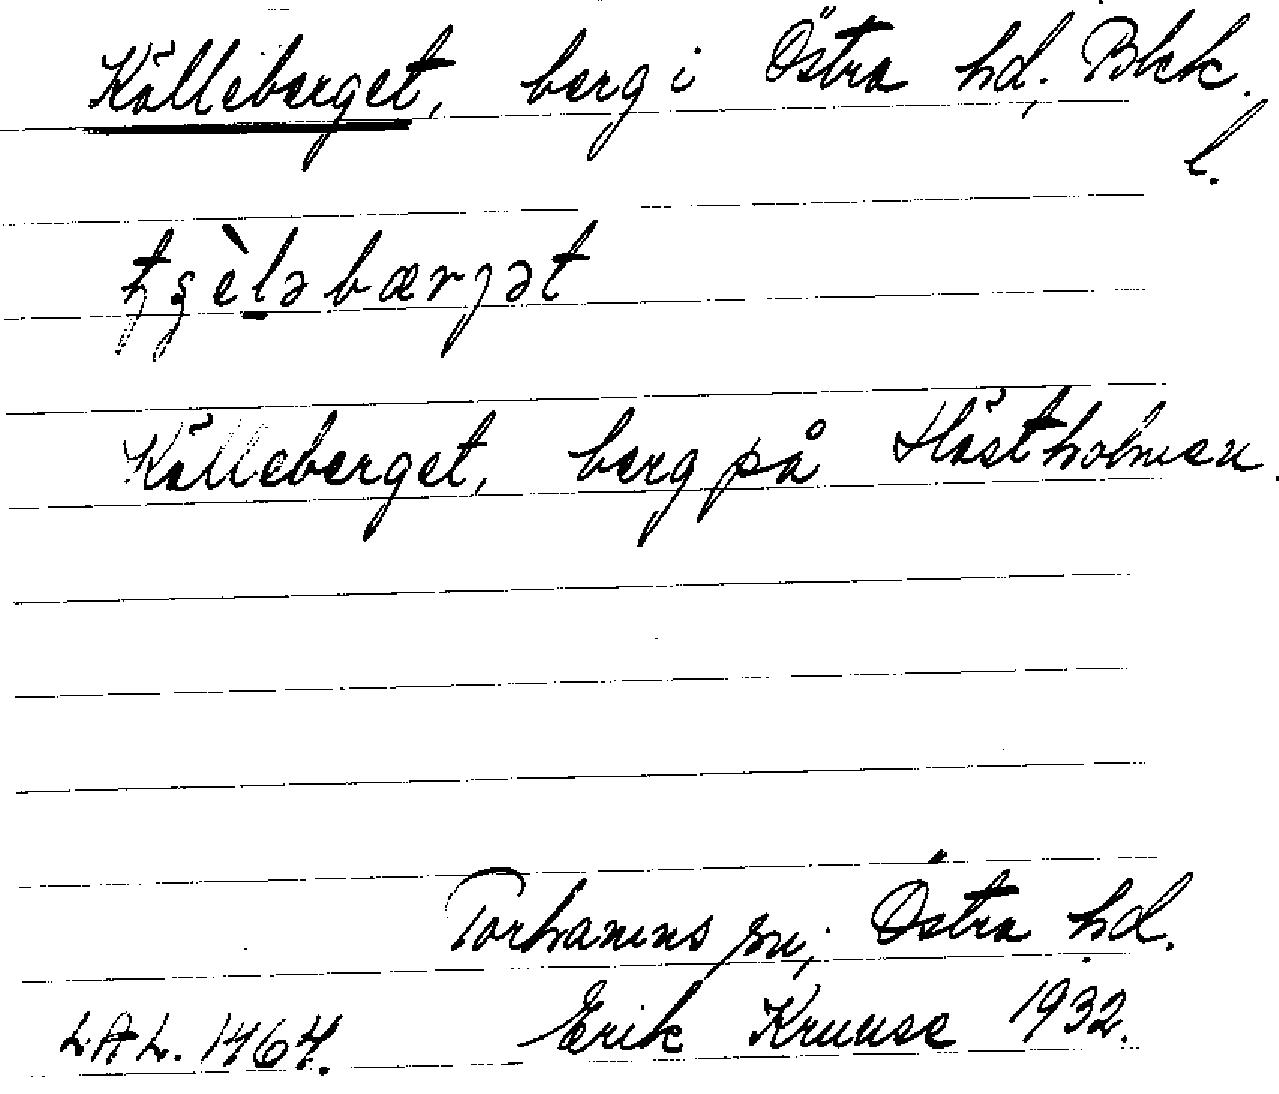 Källeberget, berg i Östra hd. Blek.
l.
Källeberget, berg på Hästholmen.
Torhamns sn; Östra hd.
L.A.L. 1464. Erik Kruuse 1932.